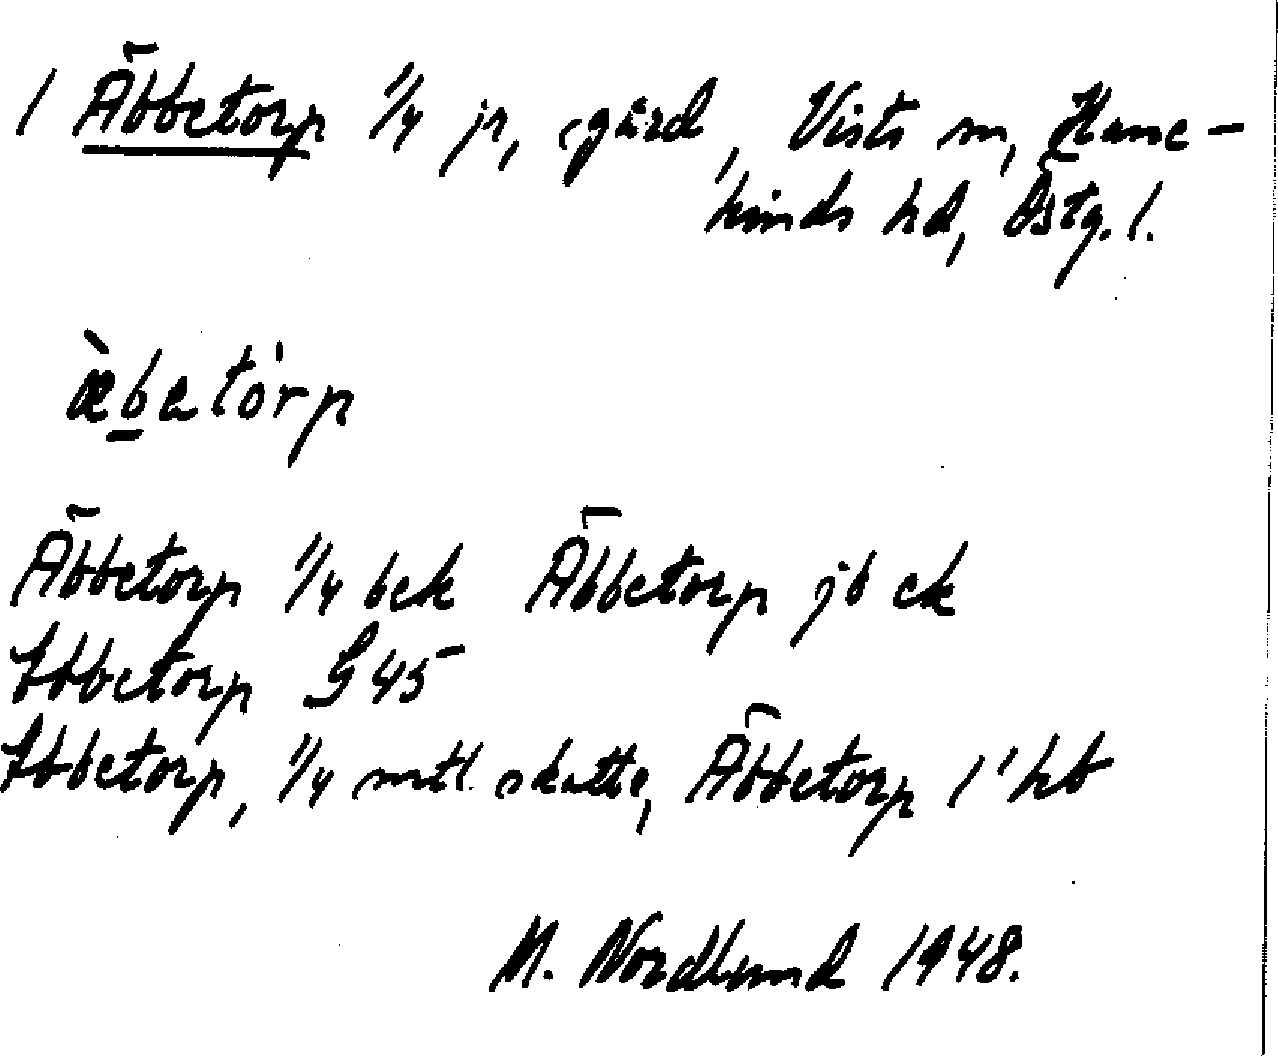 1 Äbbetorp 1/4 jr, gård, Vists sn, Hane-
kinds hd, Östg. l.
æ̀betórp
Äbbetorp 1/4 bek Äbbetorp jb ek
Ebbetorp G 45
Ebbetorp, 1/4 mtl. skatte, Äbbetorp 1' hb
M. Nordlund 1948.